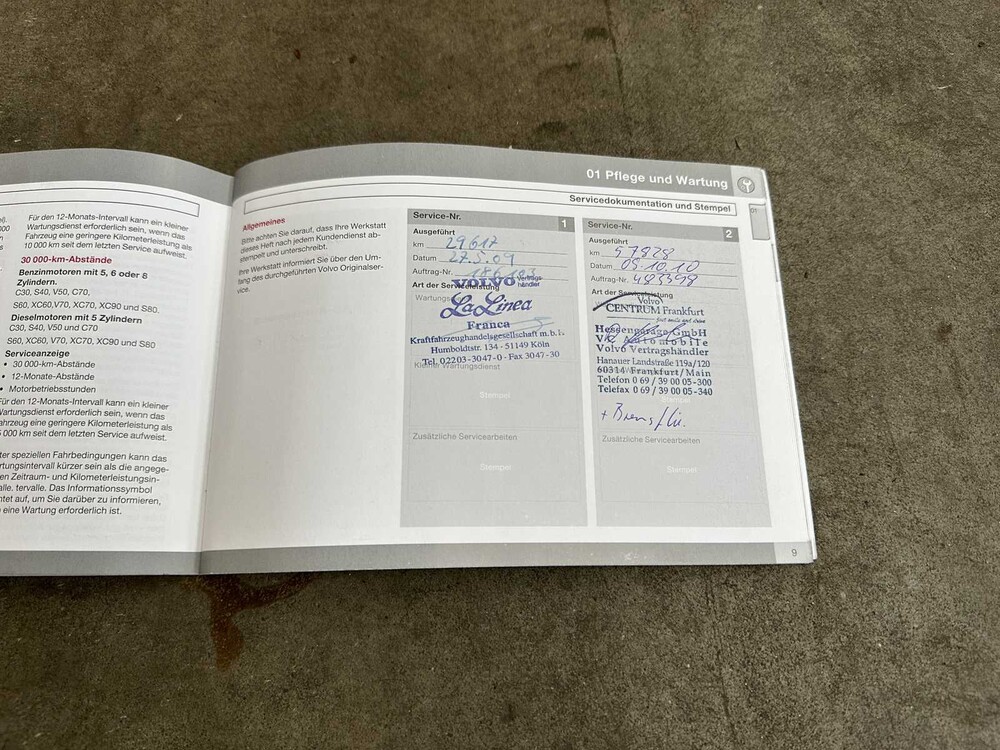 Für den 12-Monats-Intervall kann ein kleiner
Wartungsdienst erforderlich sein, wenn das
Fahrzeug eine geringere Kilometerleistung als
10 000 km seit dem letzten Service aufweist.
30 000-km-Abstände
Benzinmotoren mit 5, 6 oder 8
Zylindern.
C30, S40, V50, C70,
S60, XC60,V70, XC70, XC90 und S80.
Dieselmotoren mit 5 Zylindern
C30, S40, V50 und C70
S60, XC60, V70, XC70, XC90 und S80
Serviceanzeige
• 30 000-km-Abstände
• 12-Monate-Abstände
• Motorbetriebsstunden
Für den 12-Monats-Intervall kann ein kleiner
Wartungsdienst erforderlich sein, wenn das
ahrzeug eine geringere Kilometerleistung als
000 km seit dem letzten Service aufweist.
ter speziellen Fahrbedingungen kann das
rtungsintervall kürzer sein als die angege-
en Zeitraum- und Kilometerleistungsin-
alle. tervalle. Das Informationssymbol
htet auf, um Sie darüber zu informieren,
eine Wartung erforderlich ist.
01 Pflege und Wartung
Servicedokumentation und Stempel
01
Allgemeines
Bitte achten Sie darauf, dass Ihre Werkstatt
dieses Heft nach jedem Kundendienst ab-
stempelt und unterschreibt.
Ihre Werkstatt informiert Sie über den Um-
fang des durchgeführten Volvo Originalser-
vice.
Service-Nr. 1
Ausgeführt
km 29617
Datum 27.5.09
Auftrag-Nr.
Art der Serviceleistung
VOLVO Vertrags-
händler
La Linea
Franca
Kraftfahrzeughandelsgesellschaft m.b.H.
Humboldtstr. 134 - 51149 Köln
Tel. 02203-3047-0 - Fax 3047-30
Kleiner Wartungsdienst
Stempel
Zusätzliche Servicearbeiten
Stempel
Service-Nr. 2
Ausgeführt
km 57828
Datum 05.10.10
Auftrag-Nr. 483398
Art der Serviceleistung
Volvo
CENTRUM Frankfurt
Hessengarage GmbH
Automobile
Volvo Vertragshändler
Hanauer Landstraße 119a/120
60314 Frankfurt/Main
Telefon 0 69 / 39 00 05-300
Telefax 0 69 / 39 00 05-340
Stempel
Zusätzliche Servicearbeiten
Stempel
9